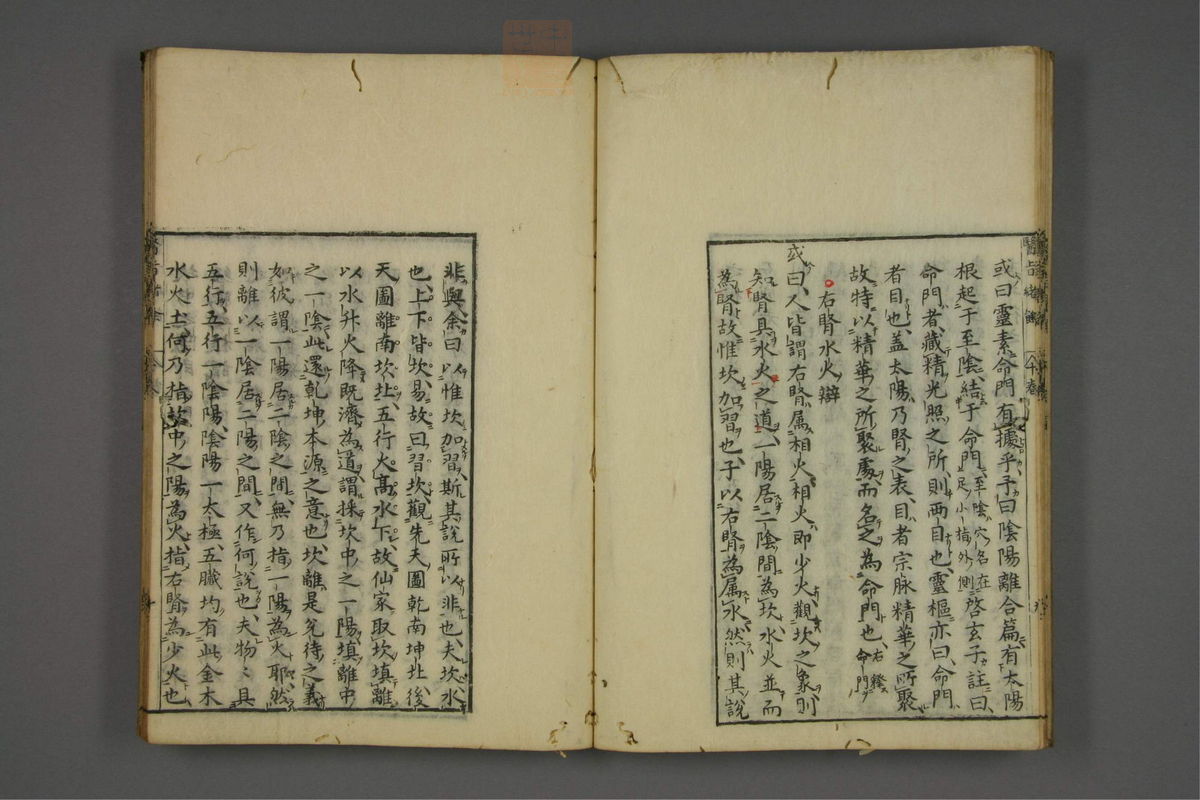 或曰靈素命門有據乎予曰陰陽離合篇有太陽
根起于至陰結于命門至陰穴名在足小指外側啓玄子註曰
命門者藏精光照之所則兩目也靈樞亦曰命門
者目也蓋太陽乃腎之表目者宗脉精華之所聚
故特以精華之所聚處而名之為命門也右釋命門
右腎水火辯
或曰人皆謂右腎属相火相火即少火觀坎之象則
知腎具水火之道一陽居二陰間為坎水火並而
為腎故惟坎加習也子以右腎為属水然則其說
非與余曰以惟坎加習斯其說所以非也夫坎水
也上下皆坎易故曰習坎觀先天圖乾南坤北後
天圖離南坎北五行火高水下故仙家取坎填離
以水升火降既濟為道謂採坎中之一陽填離中
之一陰此還乾坤本源之意也坎離是兊待之義
如彼謂一陽居二陰之間無乃指一陽為火耶然
則離以一陰居二陽之間又作何說也夫物〻具
五行五行一陰陽陰陽一太極五臓均有此金木
水火土何乃指坎中之陽為火指右腎為少火也